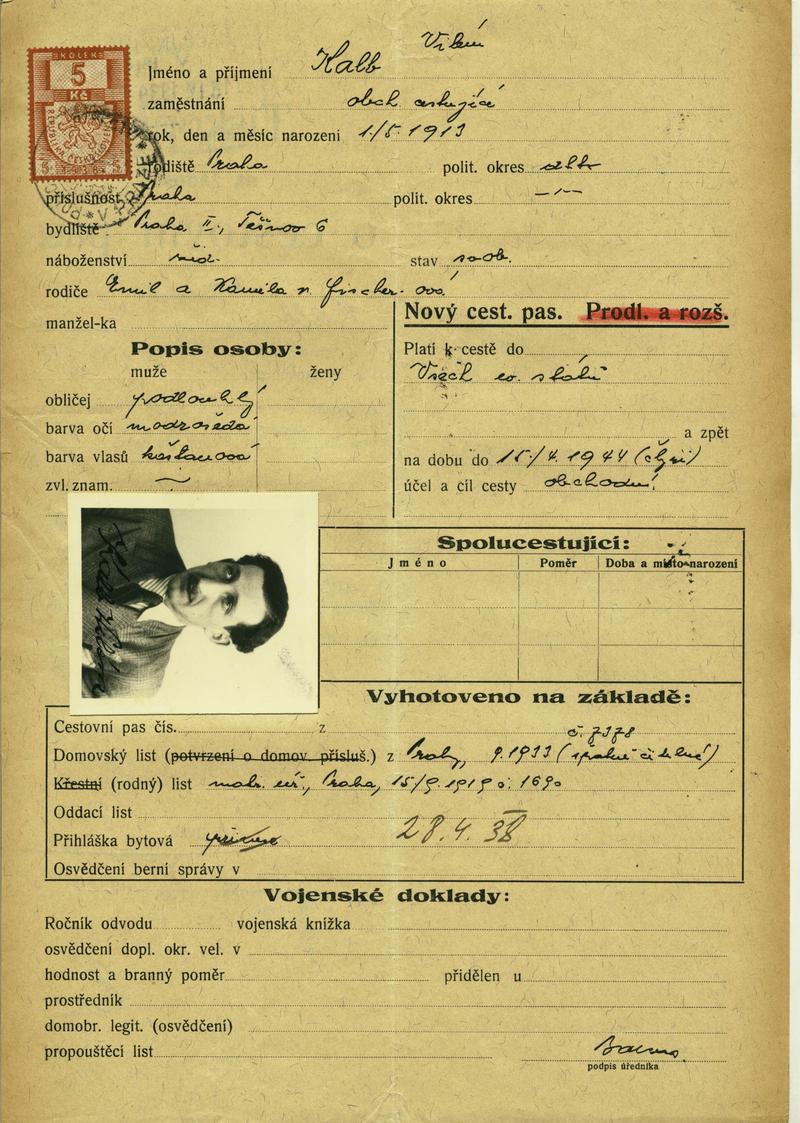 Vilém
KOLEK
5
Kč
REPUBLIKA ČESKOSLOVENSKÁ
Jméno a příjmení Kalb
zaměstnání obch. cestující
rok, den a měsíc narození 1/5. 1913
rodiště Praha polit. okres
příslušnost Praha polit. okres -"-
bydliště Praha II., Těšnov 6
náboženství žid. stav svob.
rodiče Emil a Kamila r. Fischer-ová
manžel-ka
Nový cest. pas. Prodl. a rozš.
Popis osoby:
muže ženy
obličej podlouhlý
barva očí modrošedá
barva vlasů kaštanová
zvl. znam.
Platí k cestě do
Všech ev. států
a zpět
na dobu do 15/4. 1944 (čtyři)
účel a cíl cesty obchodní
Kalb Vilém
Spolucestující:
Jméno Poměr Doba a místo narození
Vyhotoveno na základě:
Cestovní pas čís. z
č. 7378
Domovský list (potvrzení o domov. přísluš.) z Prahy, 9. 1933
Křestní (rodný) list matr. úř., Praha, 15/9. 1919 č. 1690
Oddací list
Přihláška bytová
28. 4. 38
Osvědčení berní správy v
Vojenské doklady:
Ročník odvodu vojenská knížka
osvědčení dopl. okr. vel. v
hodnost a branný poměr přidělen u
prostředník
domobr. legit. (osvědčení)
propouštěcí list
podpis úředníka